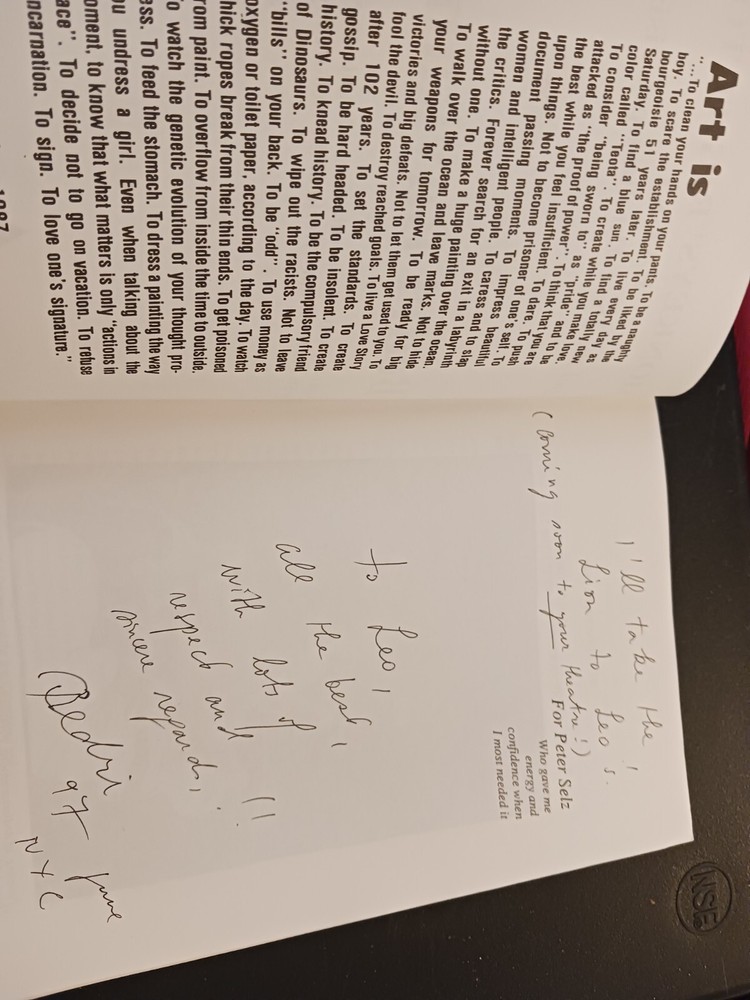 Art is
"...To clean your hands on your pants. To be a naughty
boy. To scare the establishment. To be liked by the
bourgeoisie 51 years later. To live every
Saturday. To find a blue sun. To find a totally new
color called "Teota". To create while you are
To consider "being sworn to" as "pride" as
attacked as "the proof of power". To make love
the best while you feel insufficient. To think that you are
upon things. Not to become prisoner of one's self. To
document passing moments. To dare. To push
women and intelligent people. To impress
the critics. Forever search for an exit in a labyrinth
without one. To make a huge painting and to slap
To walk over the ocean and leave marks. Not to hide
your weapons for tomorrow. To be ready for big
victories and big defeats. Not to let them get used to you. To
fool the devil. To destroy reached goals. To live a Love Story
after 102 years. To set the standards. To create
gossip. To be hard headed. To be insolent. To create
history. To knead history. To be the compulsory friend
of Dinosaurs. To wipe out the racists. Not to leave
"bills" on your back. To be "odd". To use money as
oxygen or toilet paper, according to the day. To watch
hick ropes break from their thin ends. To get poisoned
rom paint. To overflow from inside the time to outside.
o watch the genetic evolution of your thought pro-
ess. To feed the stomach. To dress a painting the way
ou undress a girl. Even when talking about the
oment, to know that what matters is only "actions in
ace". To decide not to go on vacation. To refuse
ncarnation. To sign. To love one's signature."
1987
I'll take the
Lion to Leo's!
(coming soon to your theatre!)
For Peter Selz
Who gave me
energy and
confidence when
I most needed it
to Leo!
all the best,
with lots of
respect and
sincere regards, !!
Bedri
97 June
NYC
NSF